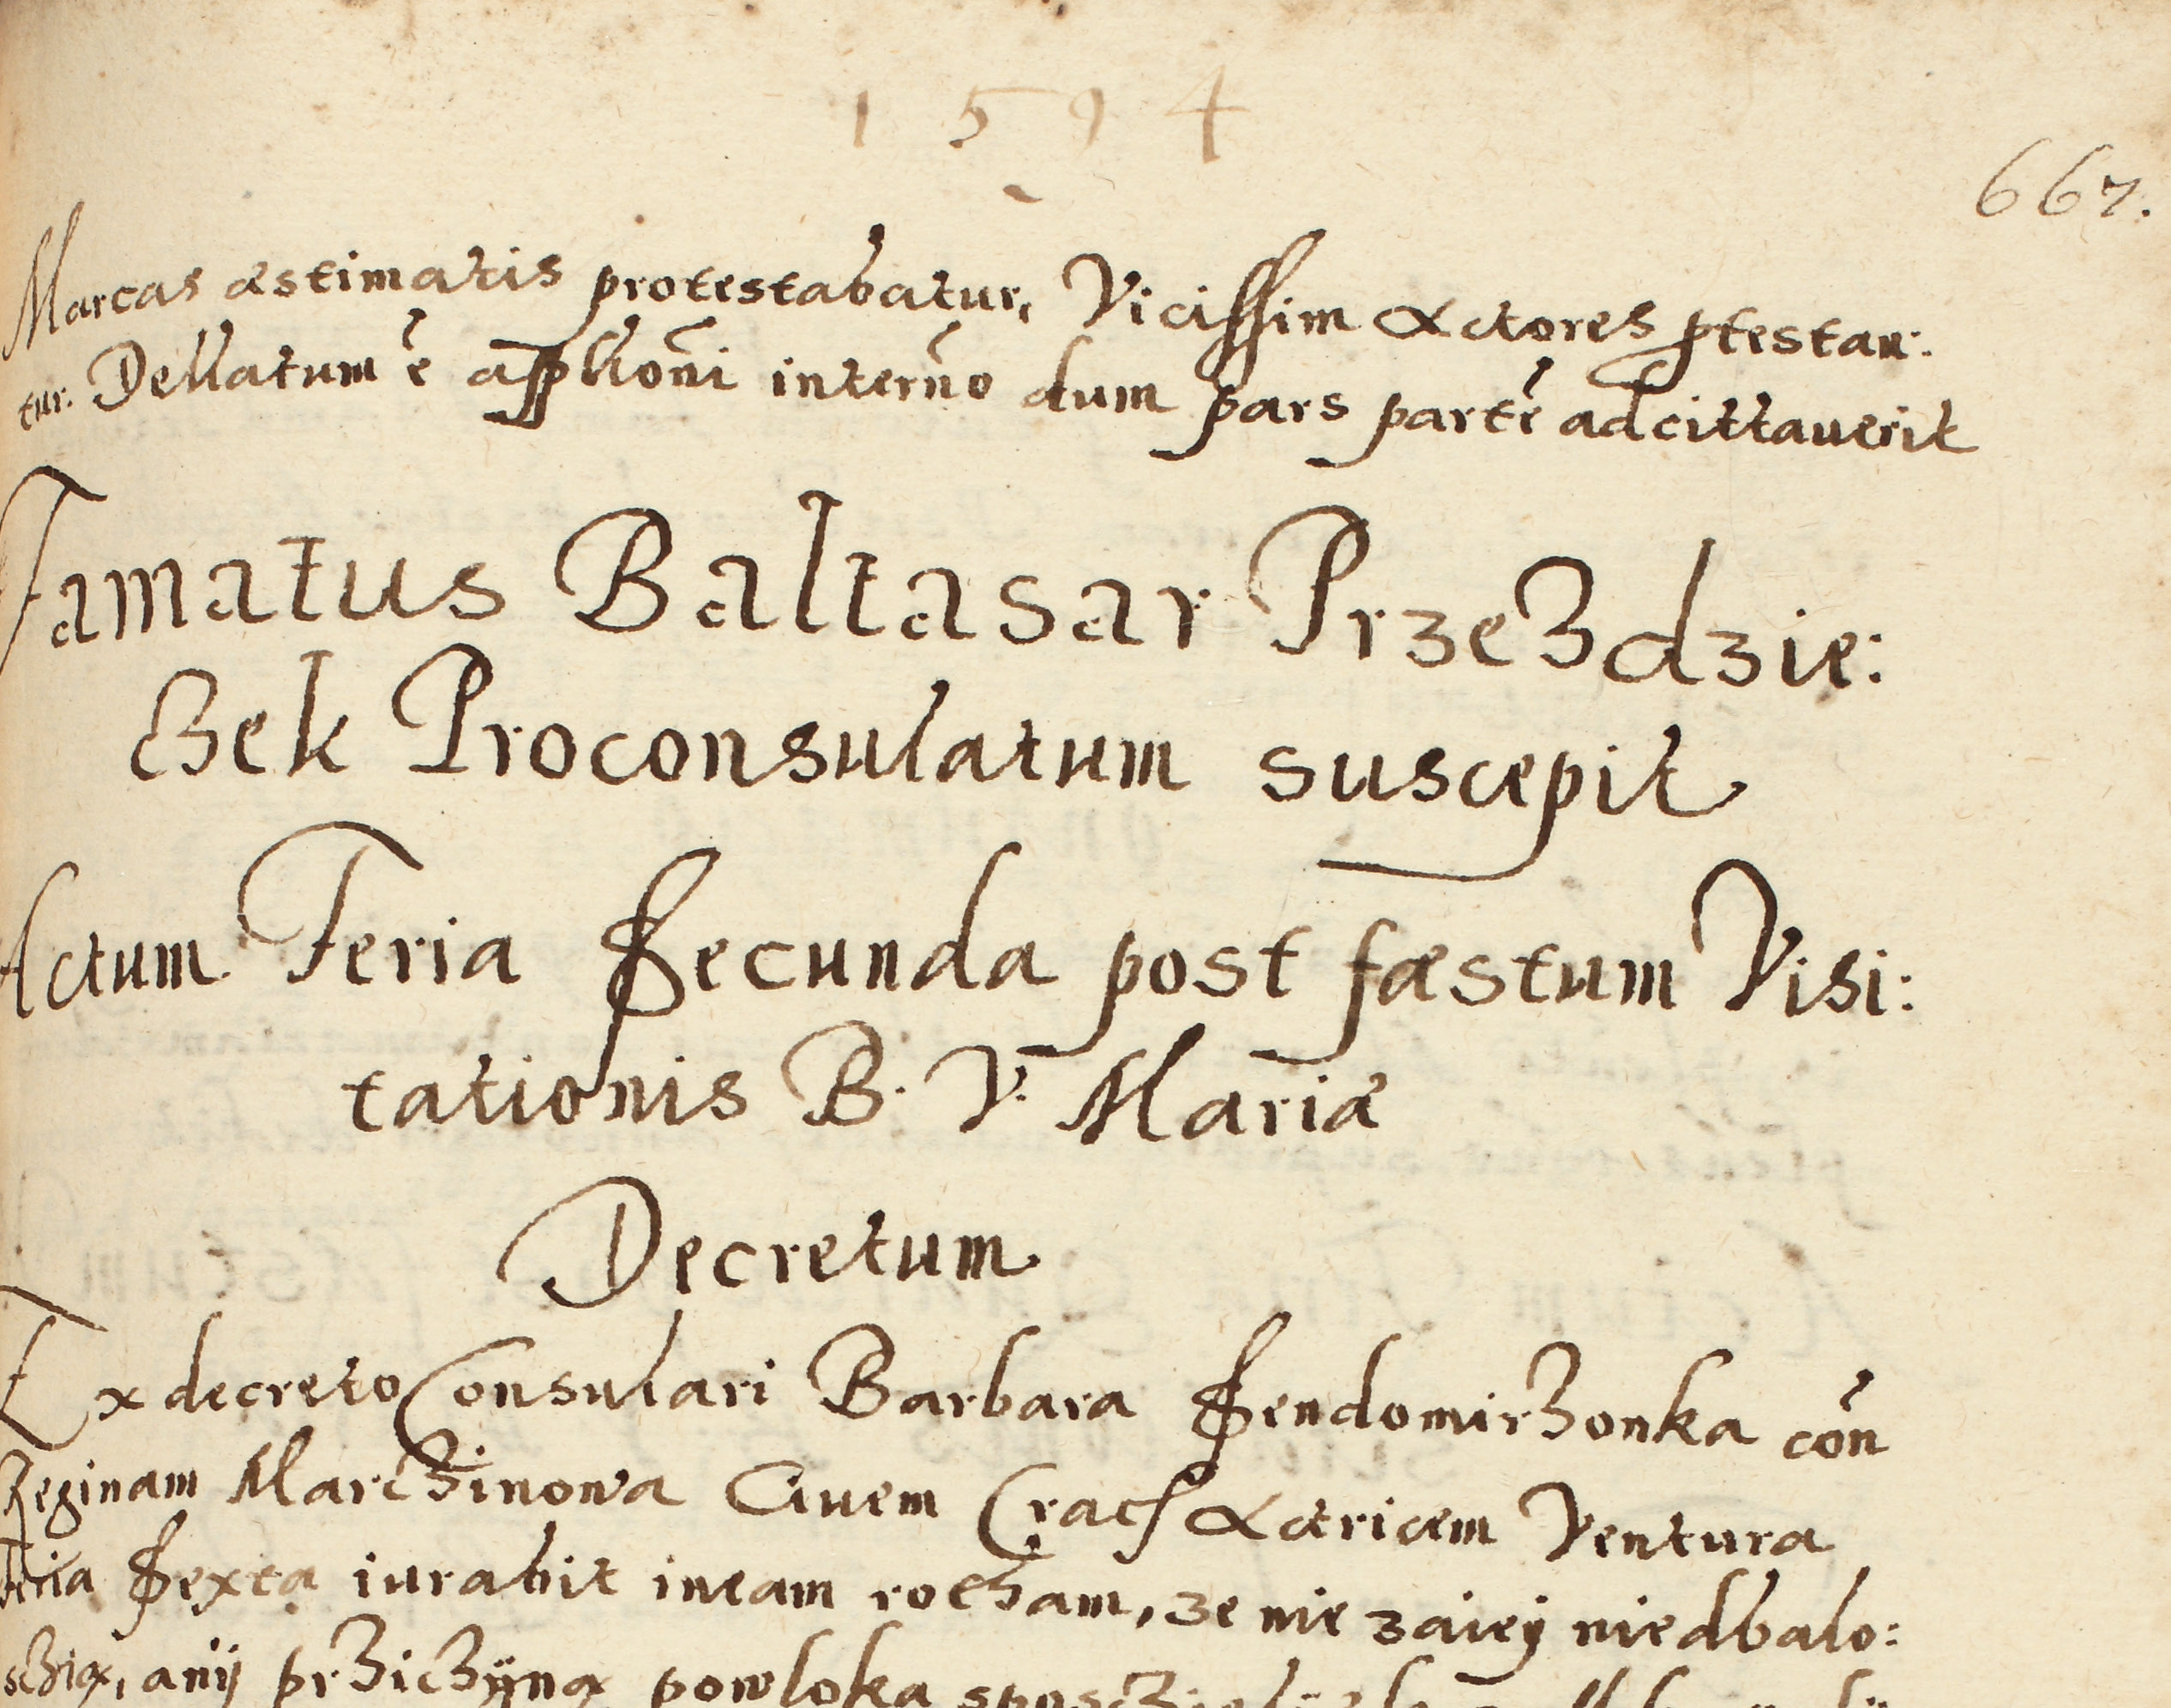 1594
667.
Marcas æstimatis protestabatur, Vicissim Actores ptestan:
tur. Dellatum ē applıōni interño dum pars partē adcittauerit
Famatus Baltasar Przezdzie:
czek Proconsulatum suscepit
Actum Feria Secunda post fæstum Visi:
tationis B. V. Mariæ
Decretum
Ex decreto Consulari Barbara Sendomirzonka cōn
Reginam Marczinowa Ciuem Crac Actricem Ventura
Feria Sexta iurabit in eam rotham, ze nie zaiey niedbalo:
sczią, anij prziczÿną powloka